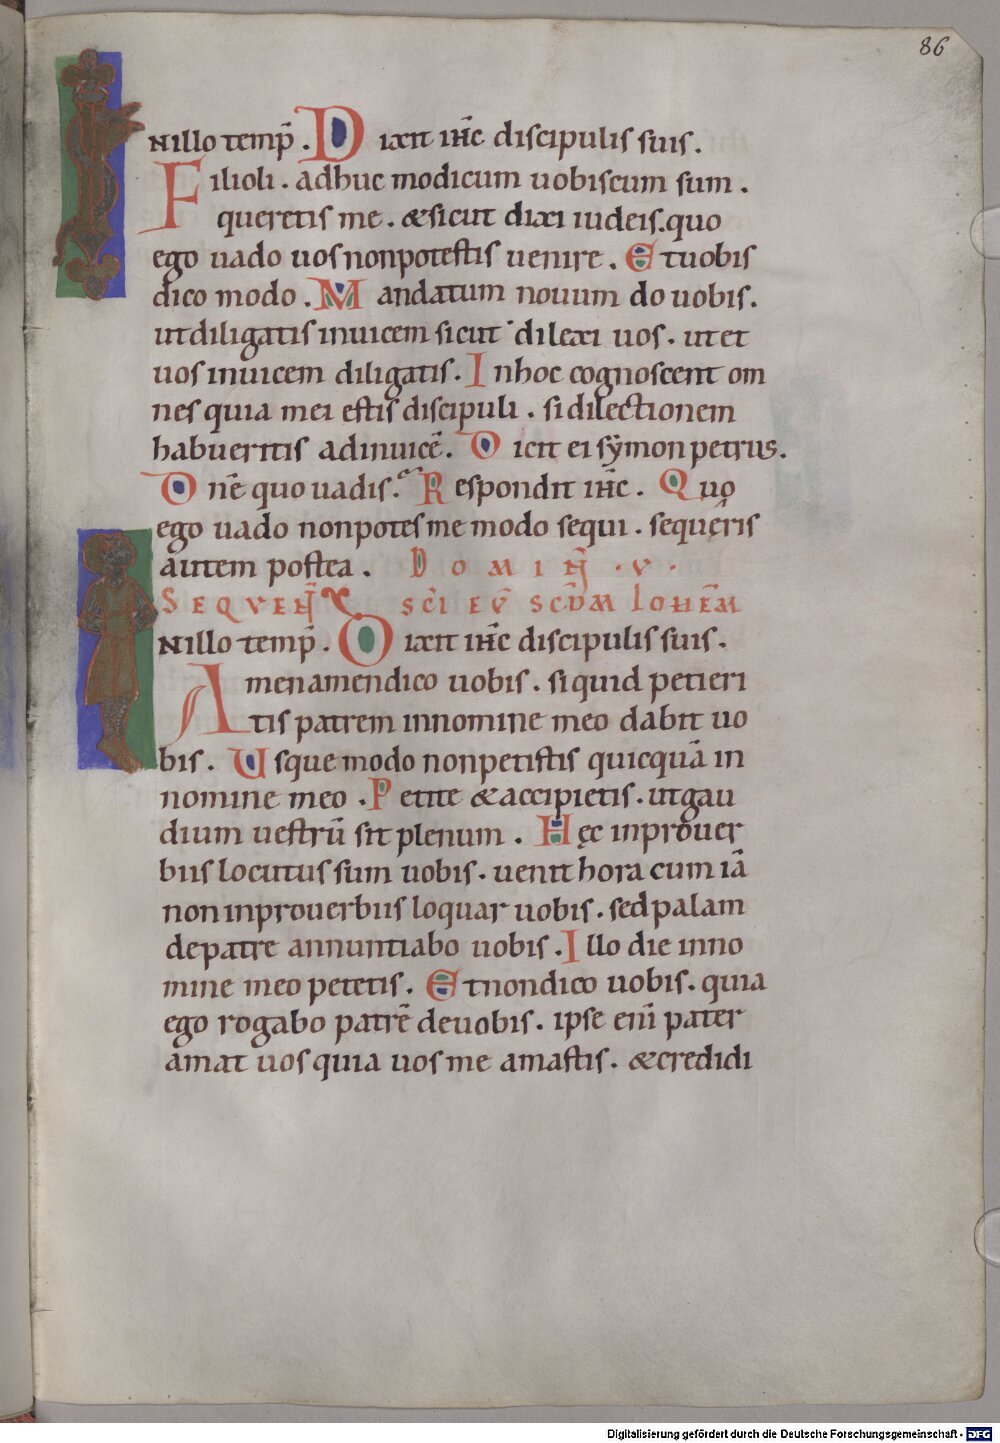 86
INillo temp̄. Dixit ih̄c discipulis suis.
Filioli. adhuc modicum uobiscum sum.
queretis me. &sicut dixi iudeis.quo
ego uado uos nonpotestis uenire. Etuobis
dico modo. Mandatum nouum do uobis.
utdiligatis inuicem sicut dilexi uos. utet
uos inuicem diligatis. Inhoc cognoscent om
nes quia mei estis discipuli. si dilectionem
habueritis adinuicē. Dicit ei sẏmon petrus.
Dn̄e quo uadis. Respondit ih̄c. Quo
ego uado nonpotes me modo sequi. sequeris
autem postea. DOMIN̄. V.
SEQVEN̄ SC̄I EV̄ SCD̄M IOHEM̄
INillo temp̄. Dixit ih̄c discipulis suis.
Amenamendico uobis. siquid petieri
tis patrem innomine meo dabit uo
bis. Usque modo nonpetistis quicquā in
nomine meo. Petite &accipietis. utgau
dium uestrū sit plenum. Hęc inprouer
biis locutus sum uobis. uenit hora cum iā
noninprouerbiis loquar uobis. sedpalam
depatre annuntiabo uobis. Illo die inno
mine meo petetis. Etnondico uobis. quia
ego rogabo patrē deuobis. ipse eni̅ pater
amat uos quia uos me amastis. &credidi
Digitalisierung gefördert durch die Deutsche Forschungsgemeinschaft - DFG